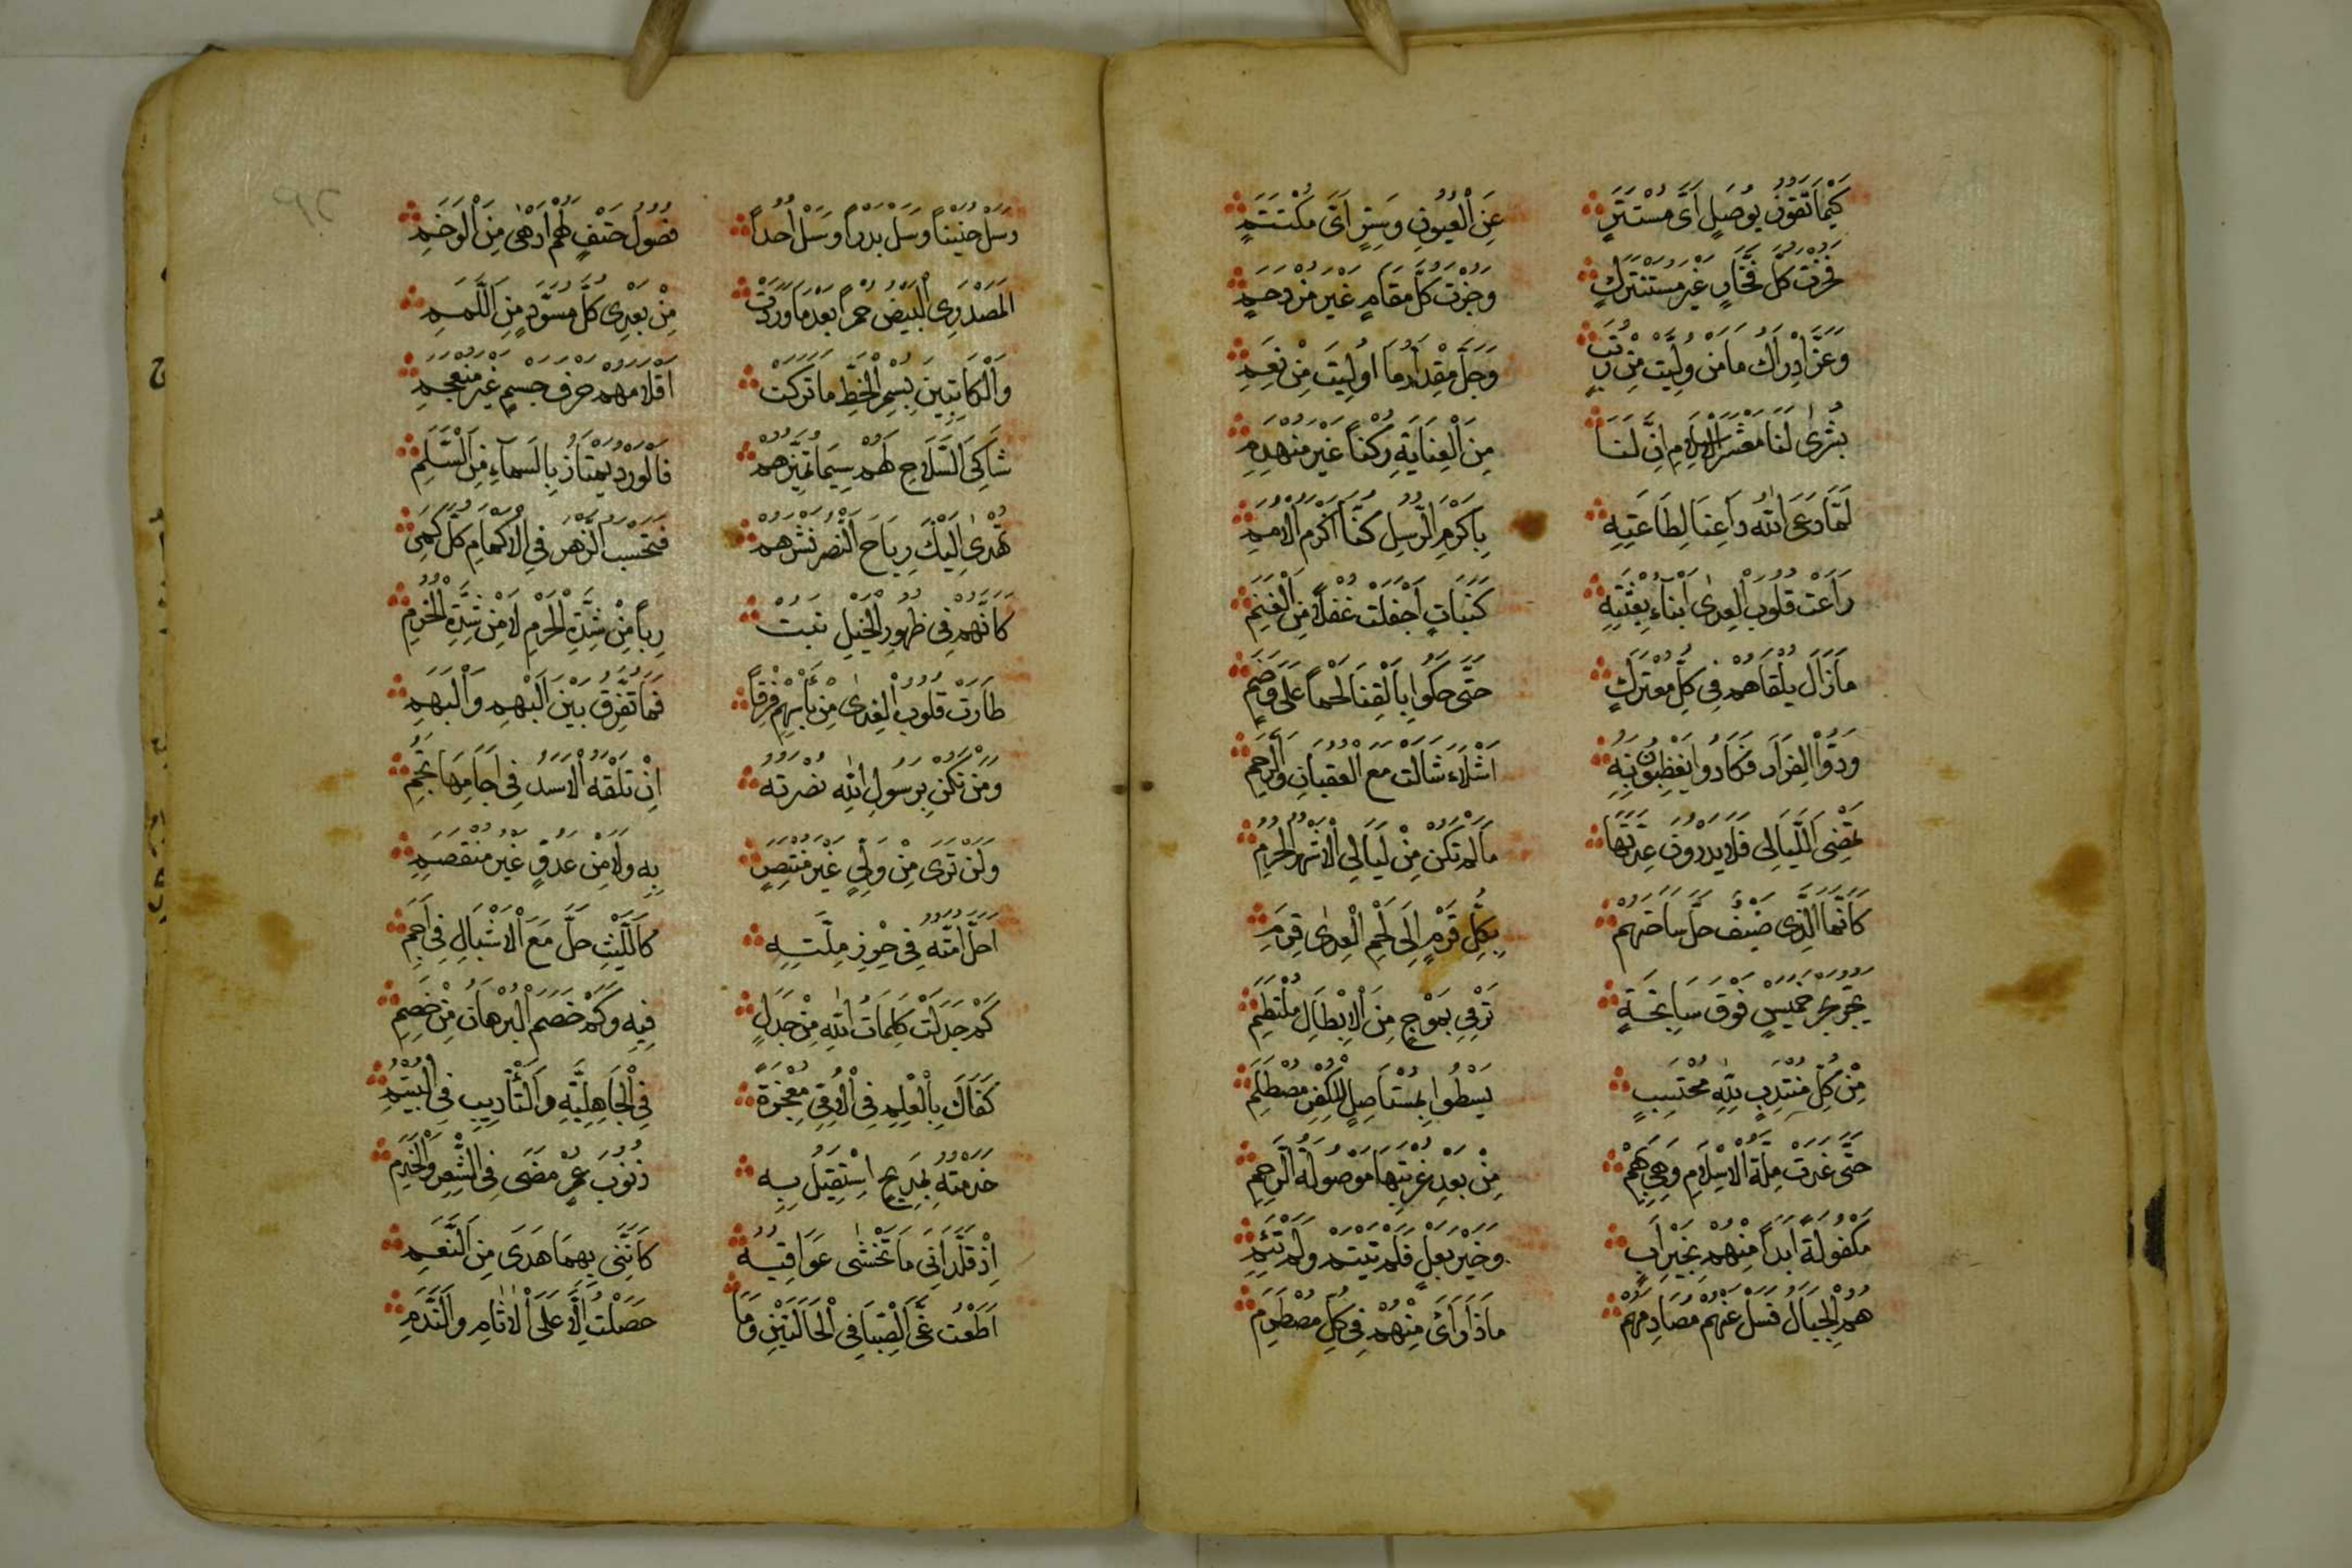 كَيْمَا تَفُوزَ بِوَصْلٍ اَيِّ مُسْتَتِرٍ عَنِ الْعُيُونِ وَسِرٍّ اَيِّ مُكْتَتَمِ
فَحُزْتَ كُلَّ فَخَارٍ غَيْرَ مُشْتَرَكٍ وَجُزْتَ كُلَّ مَقَامٍ غَيْرَ مُزْدَحَمِ
وَعَزَّ اِدْرَاكُ مَا مَنْ وُلِّيتَ مِنْ رُتَبٍ وَجَلَّ مِقْدَارُ مَا اُولِيتَ مِنْ نِعَمِ
بُشْرٰى لَنَا مَعْشَرَ الْاِسْلَامِ اِنَّ لَنَا مِنَ الْعِنَايَةِ رُكْنًا غَيْرَ مُنْهَدِمِ
لَمَّا دَعَى اللّٰهُ دَاعِنَا لِطَاعَتِهِ بِاَكْرَمِ الرُّسْلِ كُنَّا اَكْرَمَ الْاُمَمِ
رَاعَتْ قُلُوبَ الْعِدٰى اَنْبَاءُ بِعْثَتِهِ كَنَبْاَتٍ اَجْفَلَتْ غُفْلًا مِنَ الْغَنَمِ
مَا زَالَ يَلْقَاهُمُ فِى كُلِّ مُعْتَرَكٍ حَتَّى حَكَوْا بِالْقِنَا لَحْمًا عَلَى وَضَمِ
وَدُّوا الْفِرَارَ فَكَادُوا يَغْبِطُونَ بِهِ اَشْلَاءَ شَالَتْ مَعَ الْعِقْبَانِ وَالرَّخَمِ
تَمْضِى اللَّيَالِى فَلَا يَدْرُونَ عِدَّتَهَا مَا لَمْ تَكُنْ مِنْ لَيَالِى الْاَشْهُرِ الْحُرُمِ
كَاَنَّمَا الذِّى ضَيْفٌ حَلَّ سَاحَتَهُمْ بِكُلِّ قَرْمٍ اِلَى لَحْمِ الْعِدٰى قَرِمِ
يَجُرُّ بَحْرَ خَمِيسٍ فَوْقَ سَابِحَةٍ تَرْمِى بِمَوْجٍ مِنَ الْاَبْطَالِ مُلْتَطِمِ
مِنْ كُلِّ مُنْتَدِبٍ لِلّٰهِ مُحْتَسِبٍ يَسْطُوا بِمُسْتَأْصِلٍ لِلْكُفْرِ مُصْطَلِمِ
حَتَّى غَدَتْ مِلَّةُ الْاِسْلَامِ وَهِىَ بِهِمْ مِنْ بَعْدِ غُرْبَتِهَا مَوْصُولَةَ الرَّحِمِ
مَكْفُولَةً اَبَدًا مِنْهُمْ بِخَيْرِ اَبٍ وَخَيْرِ بَعْلٍ فَلَمْ تَيْتَمْ وَلَمْ تَئِمِ
هُمُ الْجِبَالُ فَسَلْ عَنْهُمْ مُصَادِمَهُمْ مَاذَا رَاَى مِنْهُمُ فِى كُلِّ مُصْطَدَمِ
وَسَلْ حُنَيْنًا وَسَلْ بَدْرًا وَسَلْ اُحُدًا فُصُولَ حَتْفٍ لَهُمْ اَدْهٰى مِنَ الْوَخَمِ
الْمُصْدِرِى الْبِيضِ حُمْرًا بَعْدَ مَا وَرَدَتْ مِنْ بَعْدِى كُلَّ مُسْوَدٍّ مِنَ اللَّمَمِ
وَالْكَاتِبِينَ بِسُمْرِ الْخَطِّ مَا تَرَكَتْ اَقْلَامُهُمْ حَرْفَ جِسْمٍ غَيْرَ مُنْعَجِمِ
شَاكِى السِّلَاحِ لَهُمْ سِيمَا تُمَيِّزُهُمْ فَالْوَرْدُ يَمْتَازُ بِالسِّمَاءِ مِنَ السَّلَمِ
تُهْدٰى اِلَيْكَ رِيَاحُ النَّصْرِ نَشْرَهُمْ فَتَحْسَبُ الزَّهْرَ فِى الْاَكْمَامِ كُلَّ كَمِى
كَاَنَّهُمْ فِى ظُهُورِ الْخَيْلِ نَبْتُ رُبًا مِنْ شِدَّةِ الْحَزْمِ لَا مِنْ شِدَّةِ الْحُزُمِ
طَارَتْ قُلُوبُ الْعِدٰى مِنْ بَأْسِهِمْ فَرَقًا فَمَا تُفَرِّقُ بَيْنَ الْبَهْمِ وَالْبُهَمِ
وَمَنْ تَكُنْ بِرَسُولِ اللّٰهِ نُصْرَتُهُ اِنْ تَلْقَهُ الْاُسْدُ فِى اٰجَامِهَا تَجِمِ
وَلَنْ تَرَى مِنْ وَلِىٍّ غَيْرَ مُنْتَصِرٍ بِهِ وَلَا مِنْ عَدُوٍّ غَيْرَ مُنْقَصِمِ
اَحَلَّ اُمَّتَهُ فِى حِرْزِ مِلَّتِهِ كَاللَّيْثِ حَلَّ مَعَ الْاَشْبَالِ فِى اَجَمِ
كَمْ جَدَّلَتْ كَلِمَاتُ اللّٰهِ مِنْ جَدَلٍ فِيهِ وَكَمْ خَصَمَ الْبُرْهَانُ مِنْ خَصِمِ
كَفَاكَ بِالْعِلْمِ فِى الْاُمِّىِّ مُعْجِزَةً فِى الْجَاهِلِيَّةِ وَالتَّأْدِيبِ فِى الْيُتُمِ
خَدَمْتُهُ بِمَدِيحٍ اَسْتَقِيلُ بِهِ ذُنُوبَ عُمْرٍ مَضَى فِى الشِّعْرِ وَالْخَدَمِ
اِذْ قَلَّدَانِىَ مَا تُخْشٰى عَوَاقِبُهُ كَاَنَّنِى بِهِمَا هَدْىٌ مِنَ النَّعَمِ
اَطَعْتُ غَىَّ الصِّبَا فِى الْحَالَتَيْنِ وَمَا حَصَلْتُ اِلَّا عَلَى الْاٰثَامِ وَالنَّدَمِ